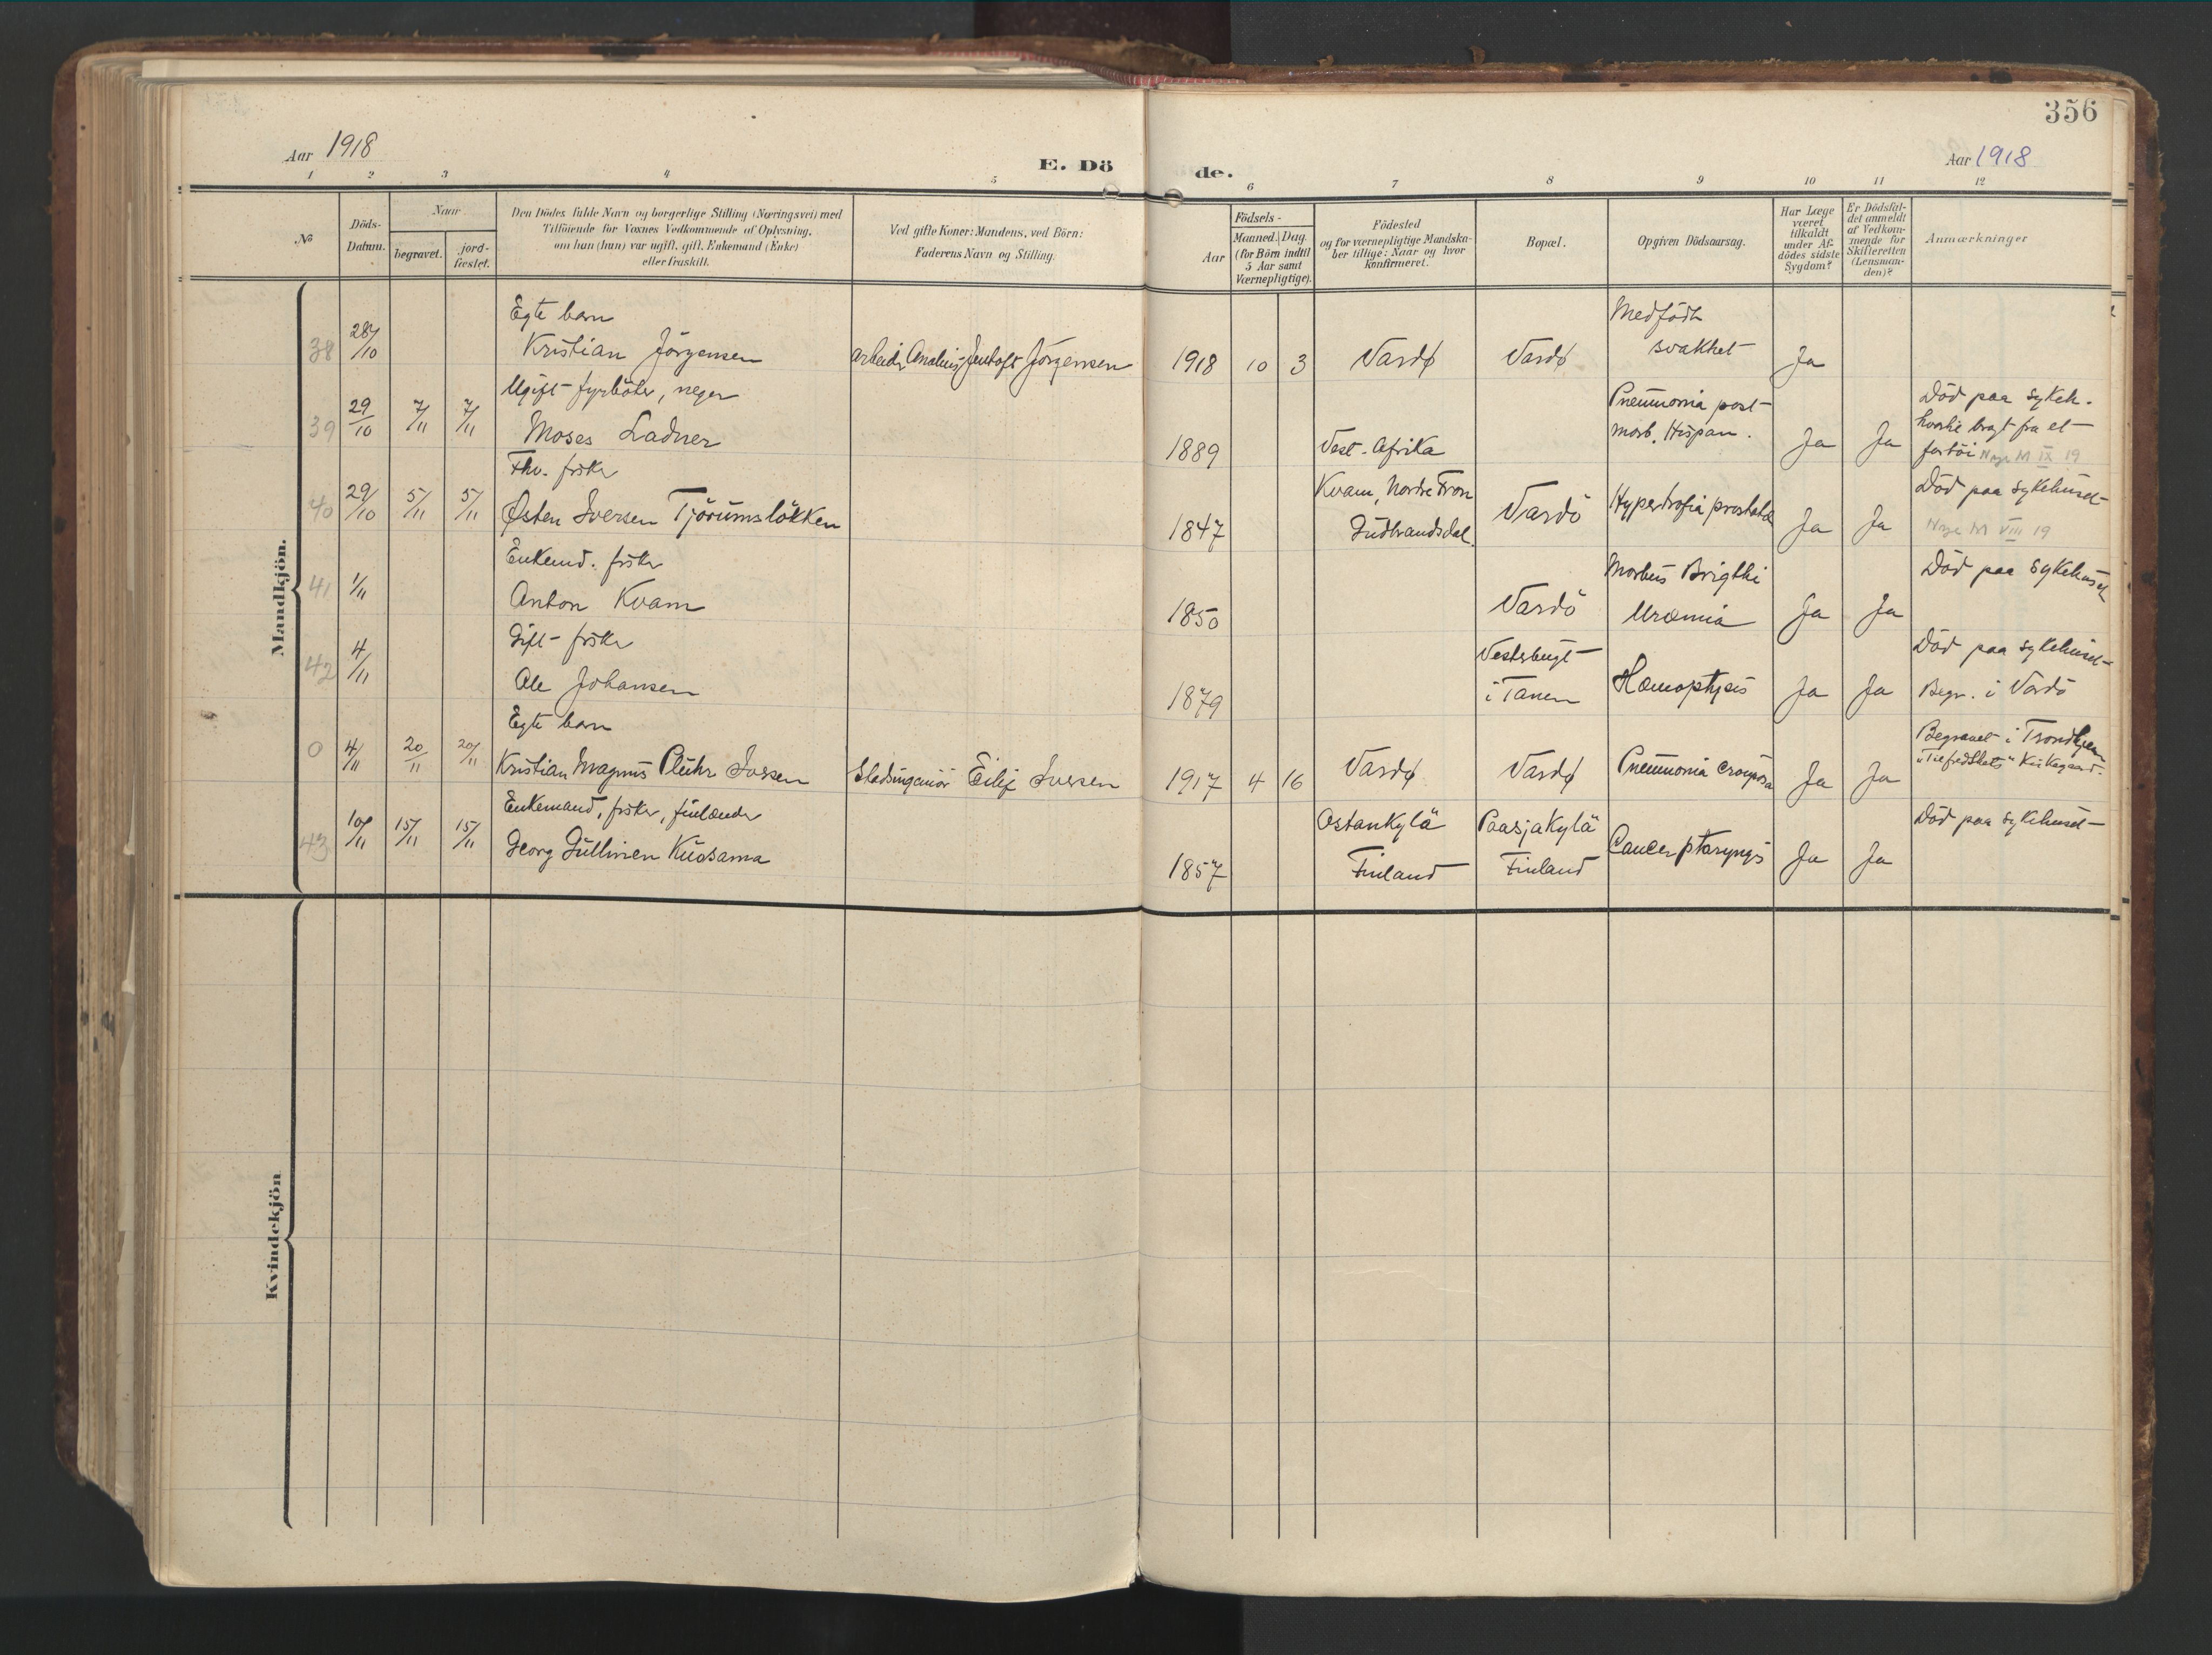 356
Aar 1918
E. Dö
de.
Aar 1918
1 2 3 4 5 6 7 8 9 10 11 12
No
Döds-
Datum.
Naar
begravet.
jord-
fæstet.
Den Dödes fulde Navn og borgerlige Stilling (Næringsvei) med
Tilföiende for Voxnes Vedkommende af Oplysning,
om han (hun) var ugift, gift, Enkemand (Enke)
eller fraskilt.
Ved gifte Koner: Mandens, ved Börn:
Faderens Navn og Stilling.
Födsels-
Aar
Maaned. Dag.
(for Börn indtil
5 Aar samt
Værnepligtige).
Födested
og for værnepligtige Mandska-
ber tillige: Naar og hvor
konfirmeret.
Bopæl.
Opgiven Dödsaarsag.
Har Læge
været
tilkaldt
under Af-
dödes sidste
Sygdom?
Er Dödsfal-
det anmeldt
af Vedkom-
mende for
Skifteretten
(Lensman-
den)?
Anmærkninger
Mandkjön.
Egte barn
38 28/10 Kristian Jörgensen
Jentoft Jörgensen 1918 10 3 Vardø Vardø
Medfödt
svakhet
Ja
Ugift fyrböter, neger
39 29/10 7/11 7/11 Moses Ladner
1889 Vest-Afrika
Pneumonia post
morb. Hispan.
Ja Ja
Död paa sykeh.
bragt fra et
fartöi IX 19
Fhv. fisker
40 29/10 5/11 5/11 Østen Iversen Tjörumslökken
1847
Kvam, Nordre Fron
Gudbrandsdal.
Vardö
Hypertrofia prostatae
Ja Ja
Död paa sykehuset
VIII 19
Enkemd. fisker
41 1/11 Anton Kvam
1850 Vardö
Morbus Brigthi
Uræmia
Ja Ja
Död paa sykehuset
Gift fisker
42 4/11 Ole Johansen
1879
Vesterbugt
i Tanen
Hæmoptysis
Ja Ja
Död paa sykehuset
Begr. i Vardö
Egte barn
0 4/11 20/11 20/11 Kristian Magnus Plühr Iversen
Stadsingeniör Eilif Iversen 1917 4 16 Vardø Vardø
Pneumonia crouposa
Ja Ja
Begravet i Trondhjem
"Tilfredshets" Kirkegaard.
Enkemand, fisker, finlænder
43 10/11 15/11 15/11 Georg Gullinen Kuosama
1857
Ostankylä
Finland
Paasjakylä
Finland
Cancer pharyngis
Ja Ja
Död paa sykehuset
Kvindekjön